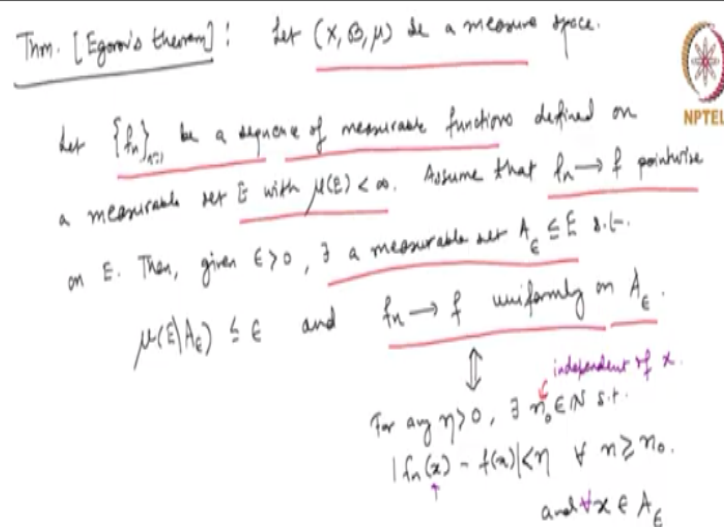 Thm. [Egorov's theorem] : Let (X, B, μ) be a measure space.
NPTEL
Let {fₙ}ₙ₌₁ be a sequence of measurable functions defined on
a measurable set E with μ(E) < ∞. Assume that fₙ → f pointwise
on E. Then, given ε > 0, ∃ a measurable set A_ε ⊆ E s.t.
μ(E\A_ε) ≤ ε and fₙ → f uniformly on A_ε.
⇕
independent of x.
For any η > 0, ∃ n₀ ∈ ℕ s.t.
|fₙ(x) - f(x)| < η ∀ n ≥ n₀.
↑
and ∀ x ∈ A_ε